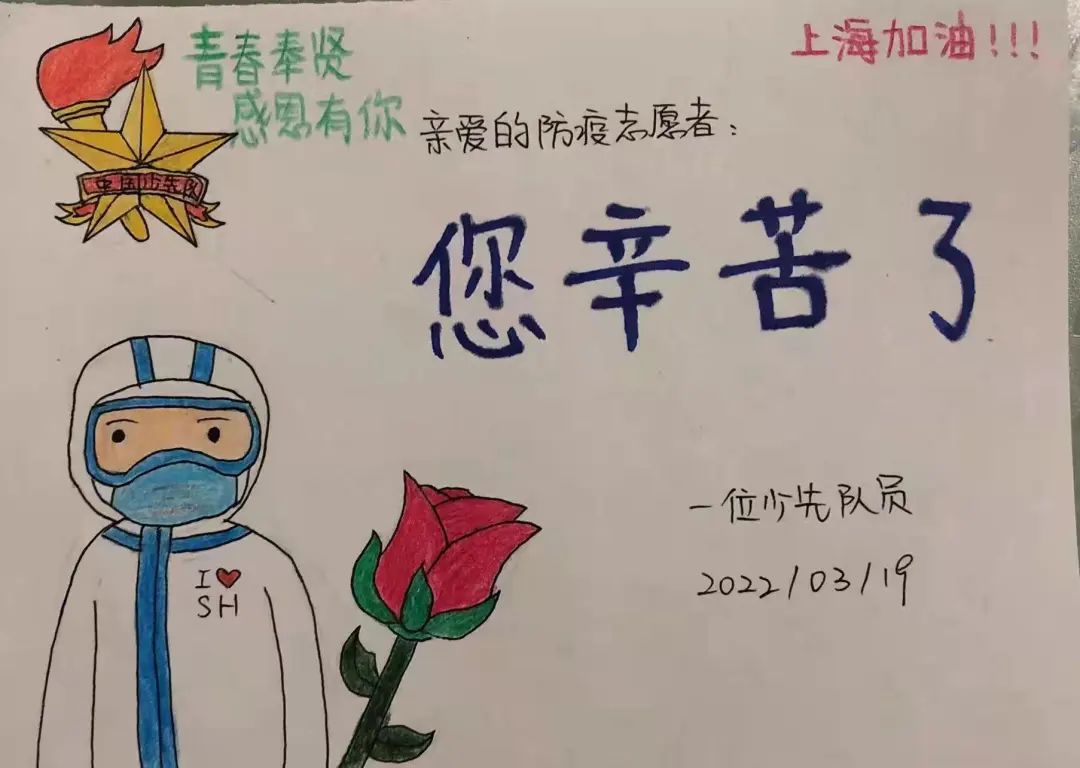 青春奉贤
感恩有你
上海加油!!!
亲爱的防疫志愿者:
您辛苦了
中国少先队
I ❤
SH
一位少先队员
2022/03/19